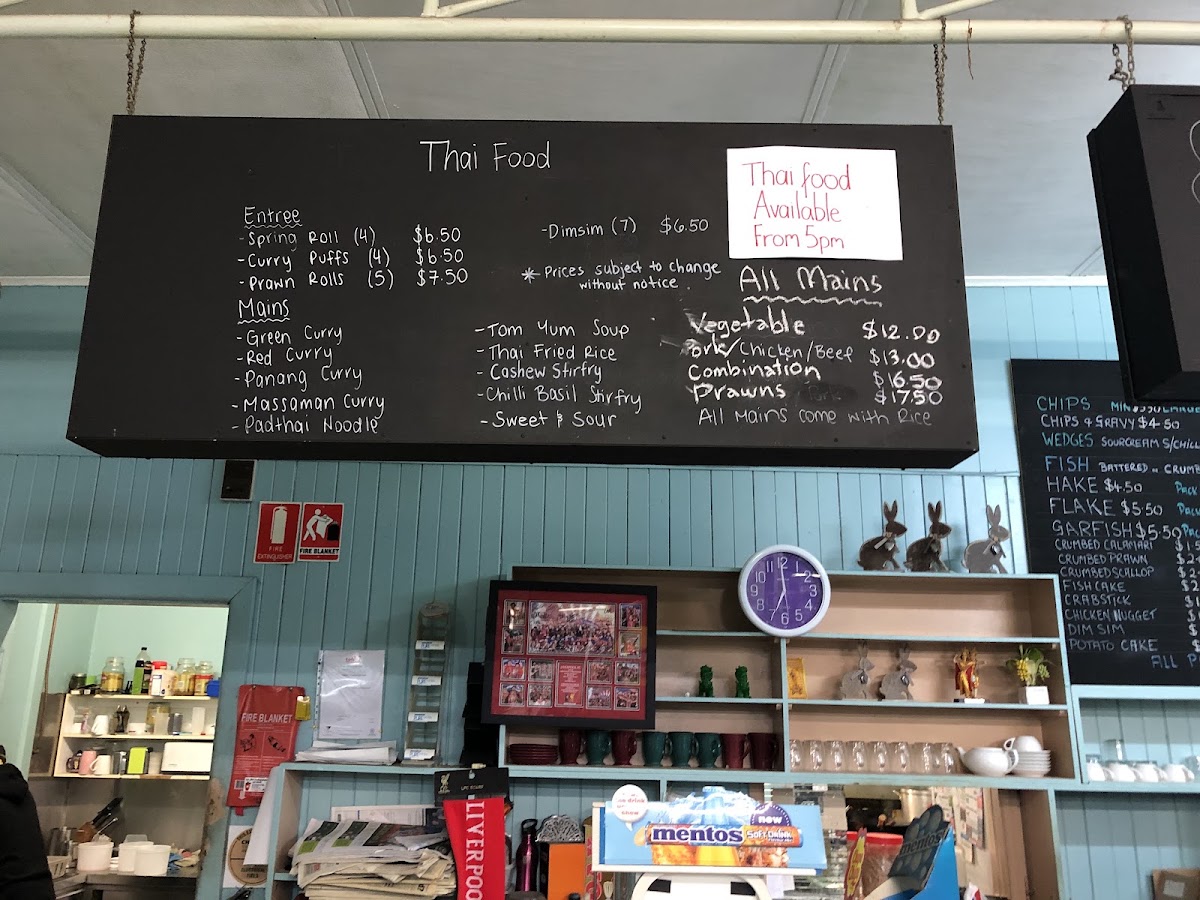 Thai Food
Thai food
Available
From 5pm
Entree
- Spring Roll (4) $6.50
- Curry Puffs (4) $6.50
- Prawn Rolls (5) $7.50
- Dimsim (7) $6.50
* Prices subject to change
without notice.
Mains
- Green Curry
- Red Curry
- Panang Curry
- Massaman Curry
- Padthai Noodle
- Tom Yum Soup
- Thai Fried Rice
- Cashew Stirfry
- Chilli Basil Stirfry
- Sweet & Sour
All Mains
Vegetable $12.00
Pork/Chicken/Beef $13.00
Combination $16.50
Prawns $17.50
All Mains come with Rice
CHIPS MIN
CHIPS & GRAVY $4.50
WEDGES SOURCREAM S/CHILL
FISH BATTERED or CRUMB
HAKE $4.50
FLAKE $5.50
GARFISH $5.50
CRUMBED CALAMARI
CRUMBED PRAWN
CRUMBED SCALLOP
FISH CAKE
CRABSTICK
CHICKEN NUGGET
DIM SIM
POTATO CAKE
ALL
FIRE
EXTINGUISHER
FIRE BLANKET
FIRE BLANKET
12
1
2
3
4
5
6
7
8
9
10
11
LIVERPOO
mentos
new
SOFT DRINK
mentos